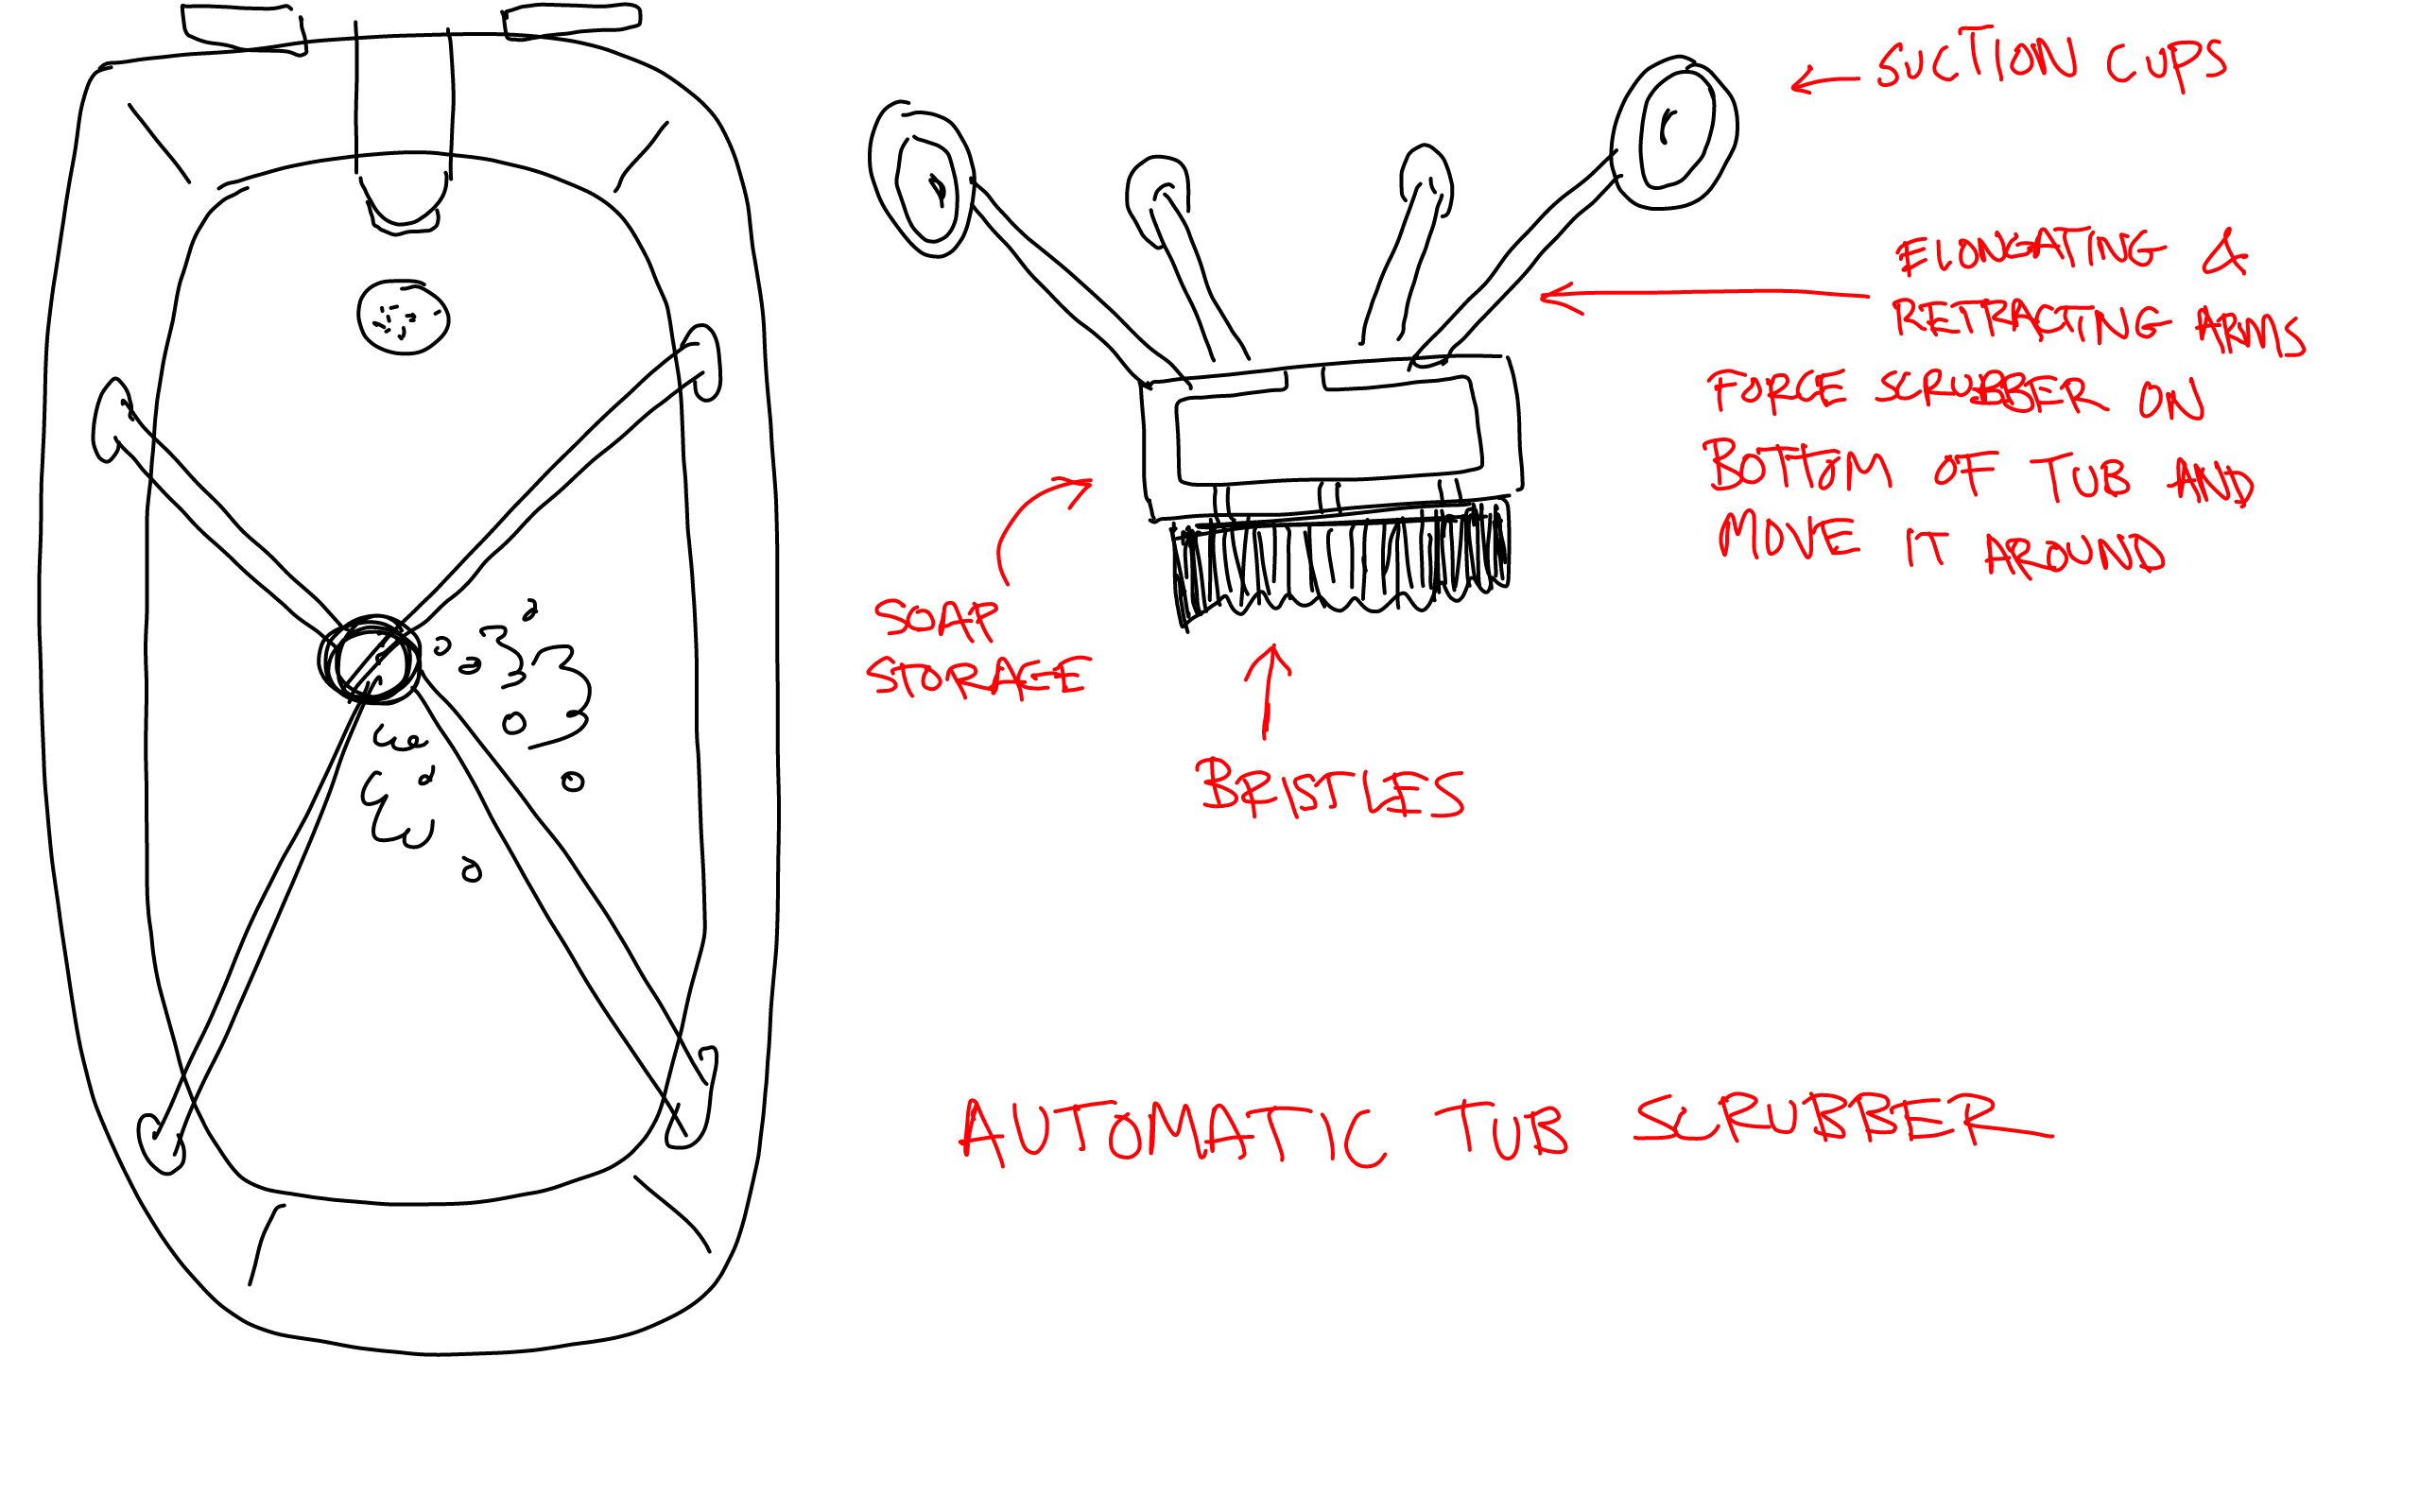 SUCTION CUPS
ELONGATING &
RETRACTING ARMS
FORCE SCRUBBER ON
BOTTOM OF TUB AND
MOVE IT AROUND
SOAP
STORAGE
BRISTLES
AUTOMATIC TUB SCRUBBER